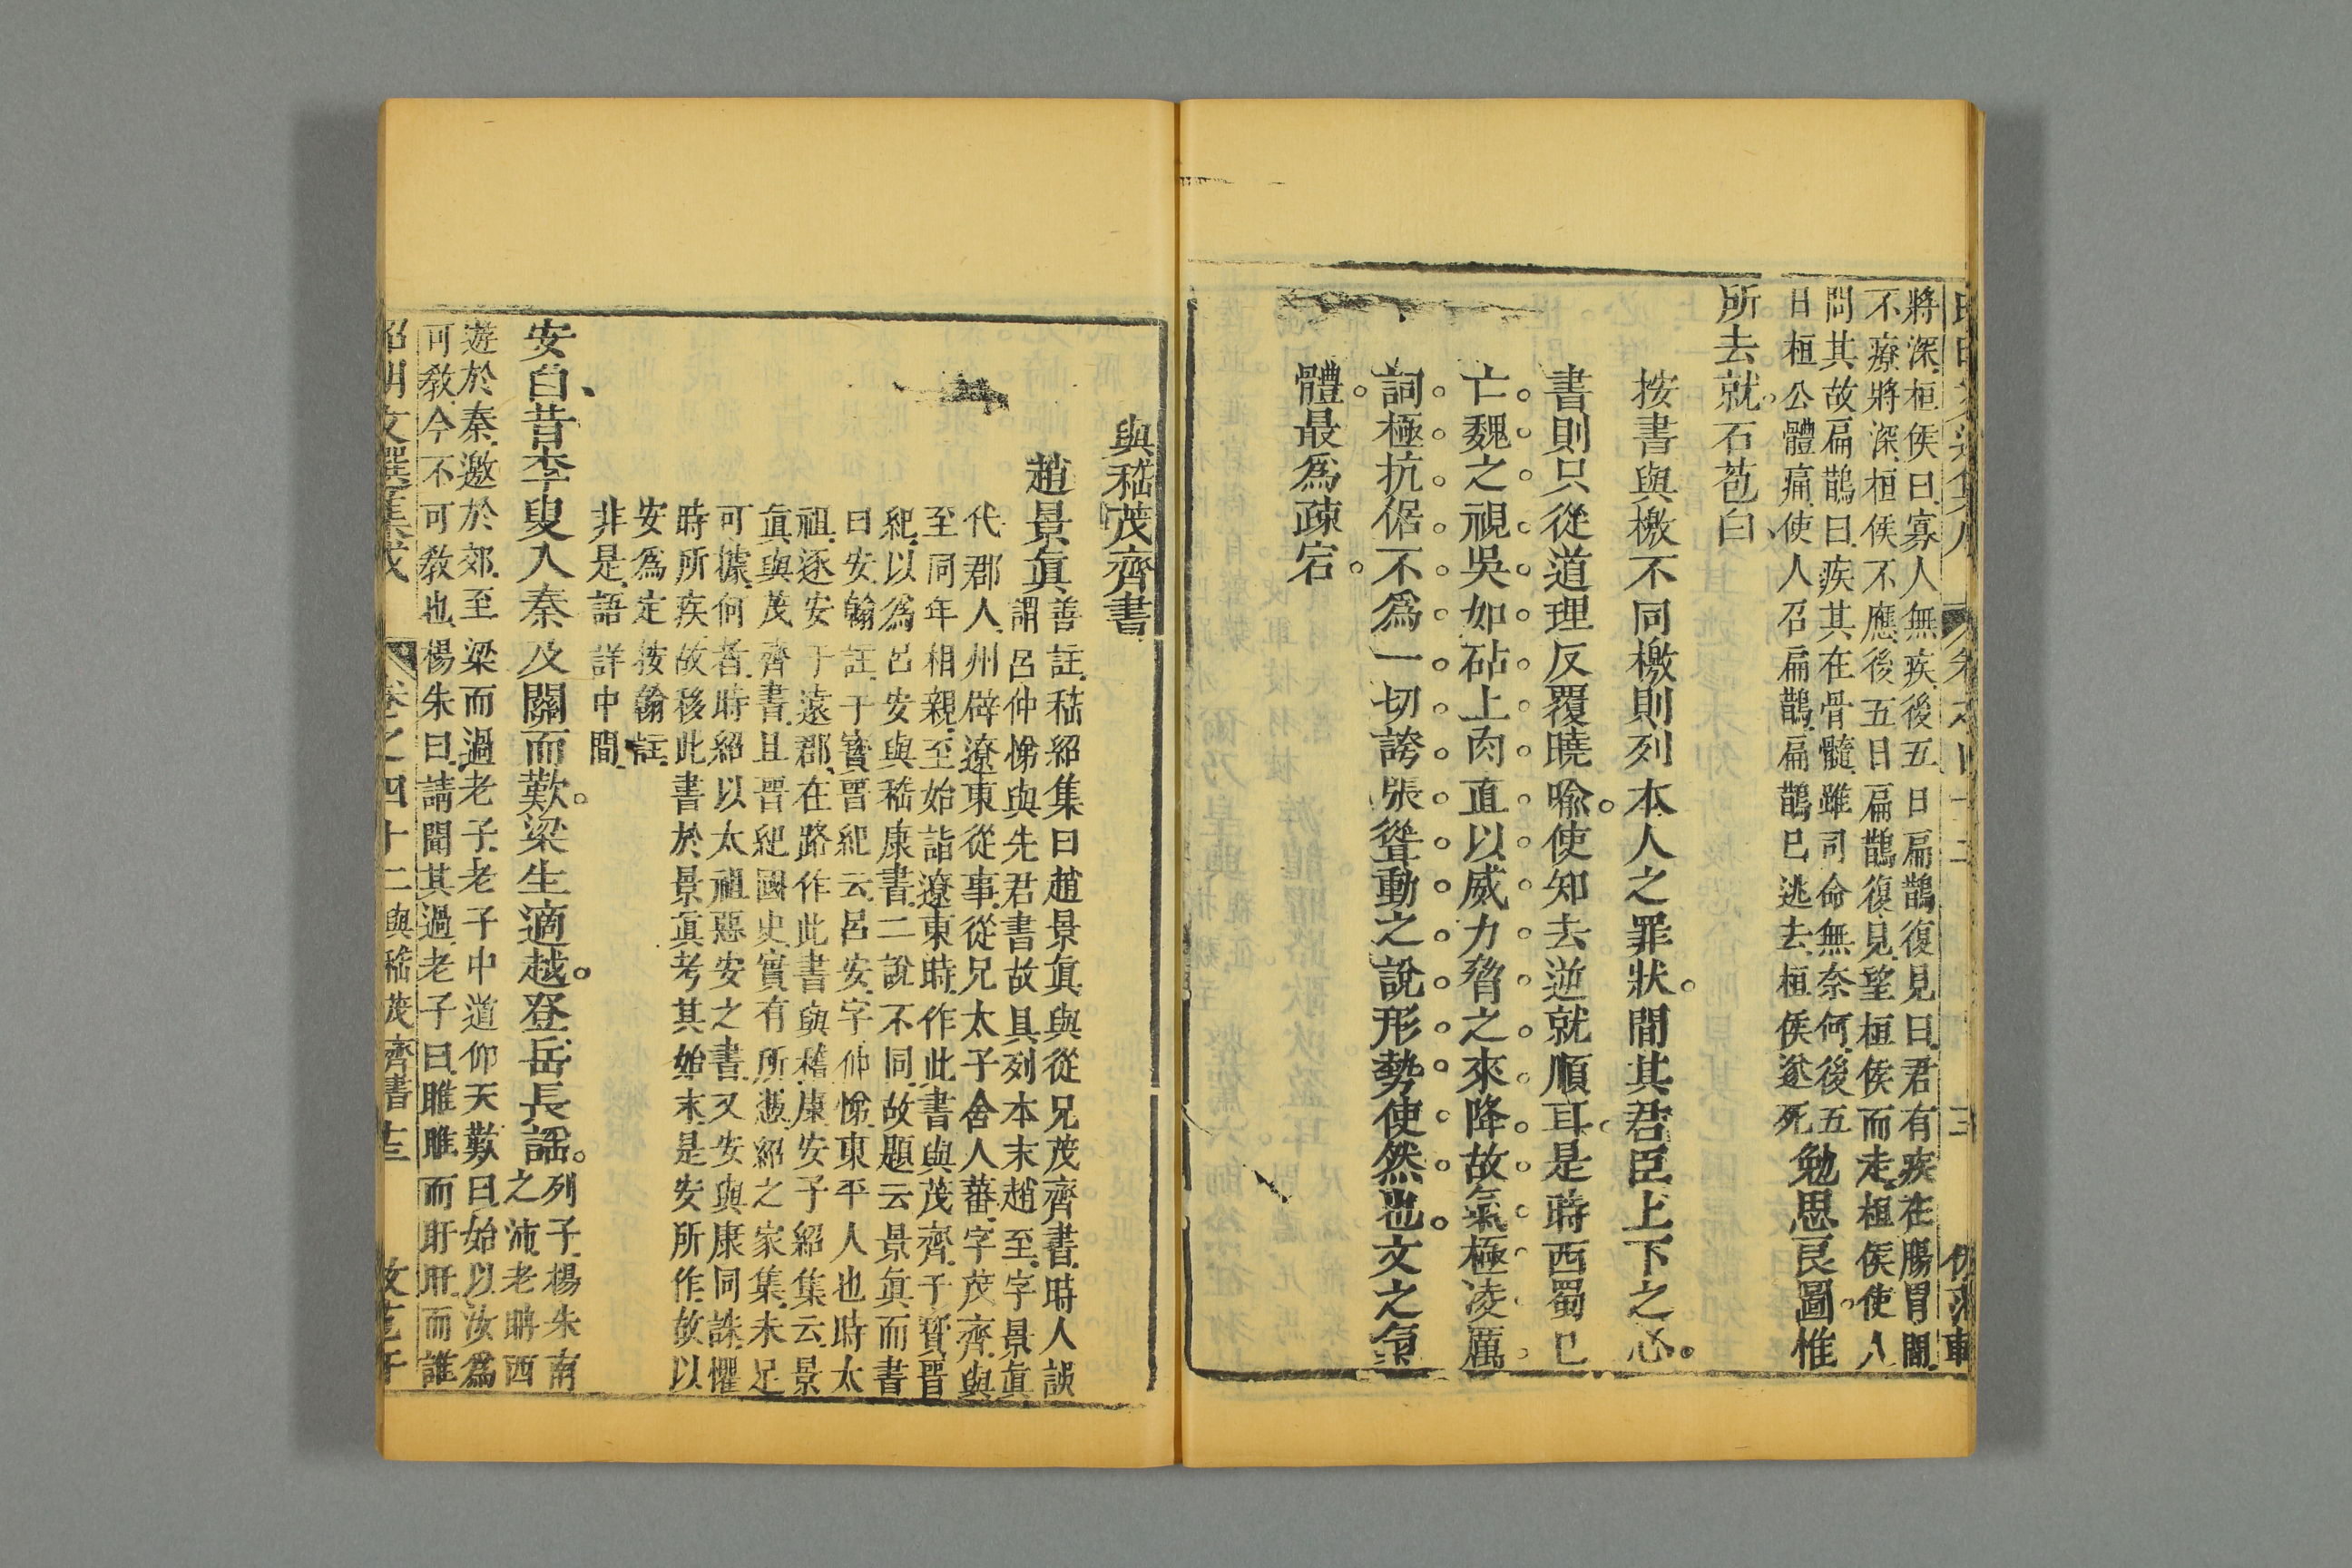 將深桓侯曰寡人無疾後五日扁鵲復見曰君有疾在腸胃間
不療將深桓侯不應後五日扁鵲復見望桓侯而走桓侯使人
問其故扁鵲曰疾其在骨髓雖司命無奈何後五
日桓公體痛使人召扁鵲扁鵲已逃去桓侯遂死
勉思良圖惟
所去就石苞白
按書與檄不同檄則列本人之罪狀間其君臣上下之心
書則只從道理反覆曉喩使知去逆就順耳是時西蜀已
亡魏之視吳如砧上肉直以威力脅之來降故氣極凌厲
詞極抗倨不爲一切誇張聳動之說形勢使然也文之氣
體最爲疎宕
與嵇茂齊書
趙景眞
善註嵇紹集曰趙景眞與從兄茂齊書時人誤
謂呂仲悌與先君書故具列本末趙至字景眞
代郡人州辟遼東從事從兄太子舍人蕃字茂齊與
至同年相親至始詣遼東時作此書與茂齊于寶晉
紀以爲呂安與嵇康書二說不同故題云景眞而書
曰安翰註于寶晉紀云呂安字仲悌東平人也時太
祖逐安于遠郡在路作此書與嵇康安子紹集云景
眞與茂齊書且晉紀國史實有所憑紹之家集未足
可據何者時紹以太祖惡安之書又安與康同誅懼
時所疾故移此書於景眞考其始末是安所作故以
安爲定按翰註
非是語詳中間
安白昔李叟入秦及關而歎梁生適越登岳長謠
列子楊朱南
之沛老聃西
遊於秦邀於郊至梁而過老子老子中道仰天歎曰始以汝爲
可敎今不可敎也楊朱曰請聞其過老子曰睢睢而盱盱而誰
昭明文選集成
卷之四十二與嵇茂齊書